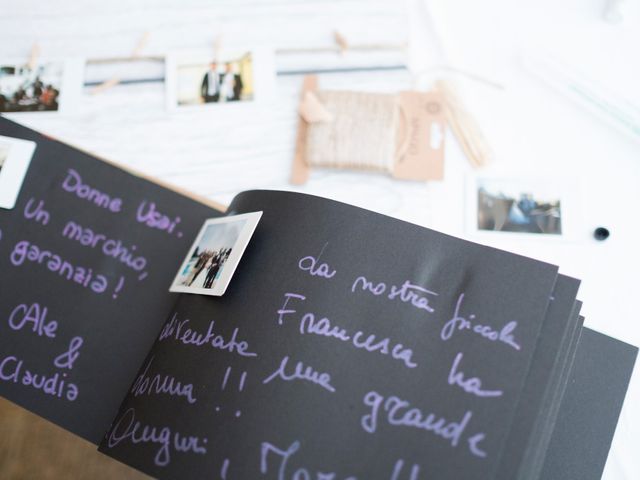 Donne Usai.
Un marchio,
garanzia!
Ale
&
Claudia
da nostra piccola
Francesca ha
diventate una grande
donna!!
Auguri